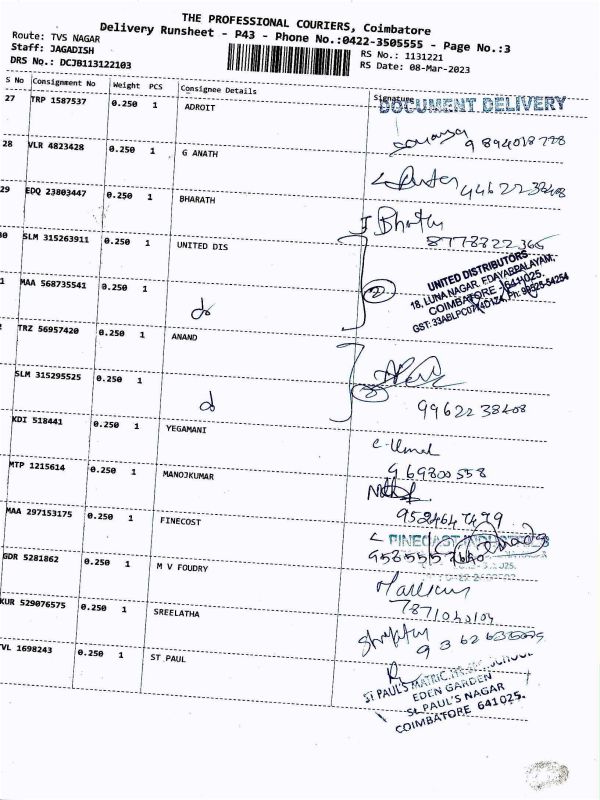 THE PROFESSIONAL COURIERS, Coimbatore
Delivery Runsheet - P43 - Phone No.:0422-3505555 - Page No.:3
Route: TVS NAGAR
Staff: JAGADISH
DRS No.: DCJB113122103
RS No.: 1131221
RS Date: 08-Mar-2023
S No Consignment No Weight PCS Consignee Details Signature
DOCUMENT DELIVERY
27 TRP 1587537 0.250 1 ADROIT
9894018778
28 VLR 4823428 0.250 1 G ANATH
29 EDQ 23803447 0.250 1 BHARATH
J Bharath
8778822366
30 SLM 315263911 0.250 1 UNITED DIS
UNITED DISTRIBUTORS
18, LUNA NAGAR, EDAYARPALAYAM,
COIMBATORE - 641025.
MAA 568735541 0.250 1 do
2
TRZ 56957420 0.250 1 ANAND
SLM 315295525 0.250 1 do
2
9962238408
KDI 518441 0.250 1 YEGAMANI
C. Umal
969800558
MTP 1215614 0.250 1 MANOJKUMAR
9524647479
MAA 297153175 0.250 1 FINECOST
GDR 5281862 0.250 1 M V FOUDRY
KUR 529076575 0.250 1 SREELATHA
TVL 1698243 0.250 1 ST PAUL
ST PAUL'S MATRIC. HR. SEC. SCHOOL
EDEN GARDEN
St. PAUL'S NAGAR
COIMBATORE 641025.